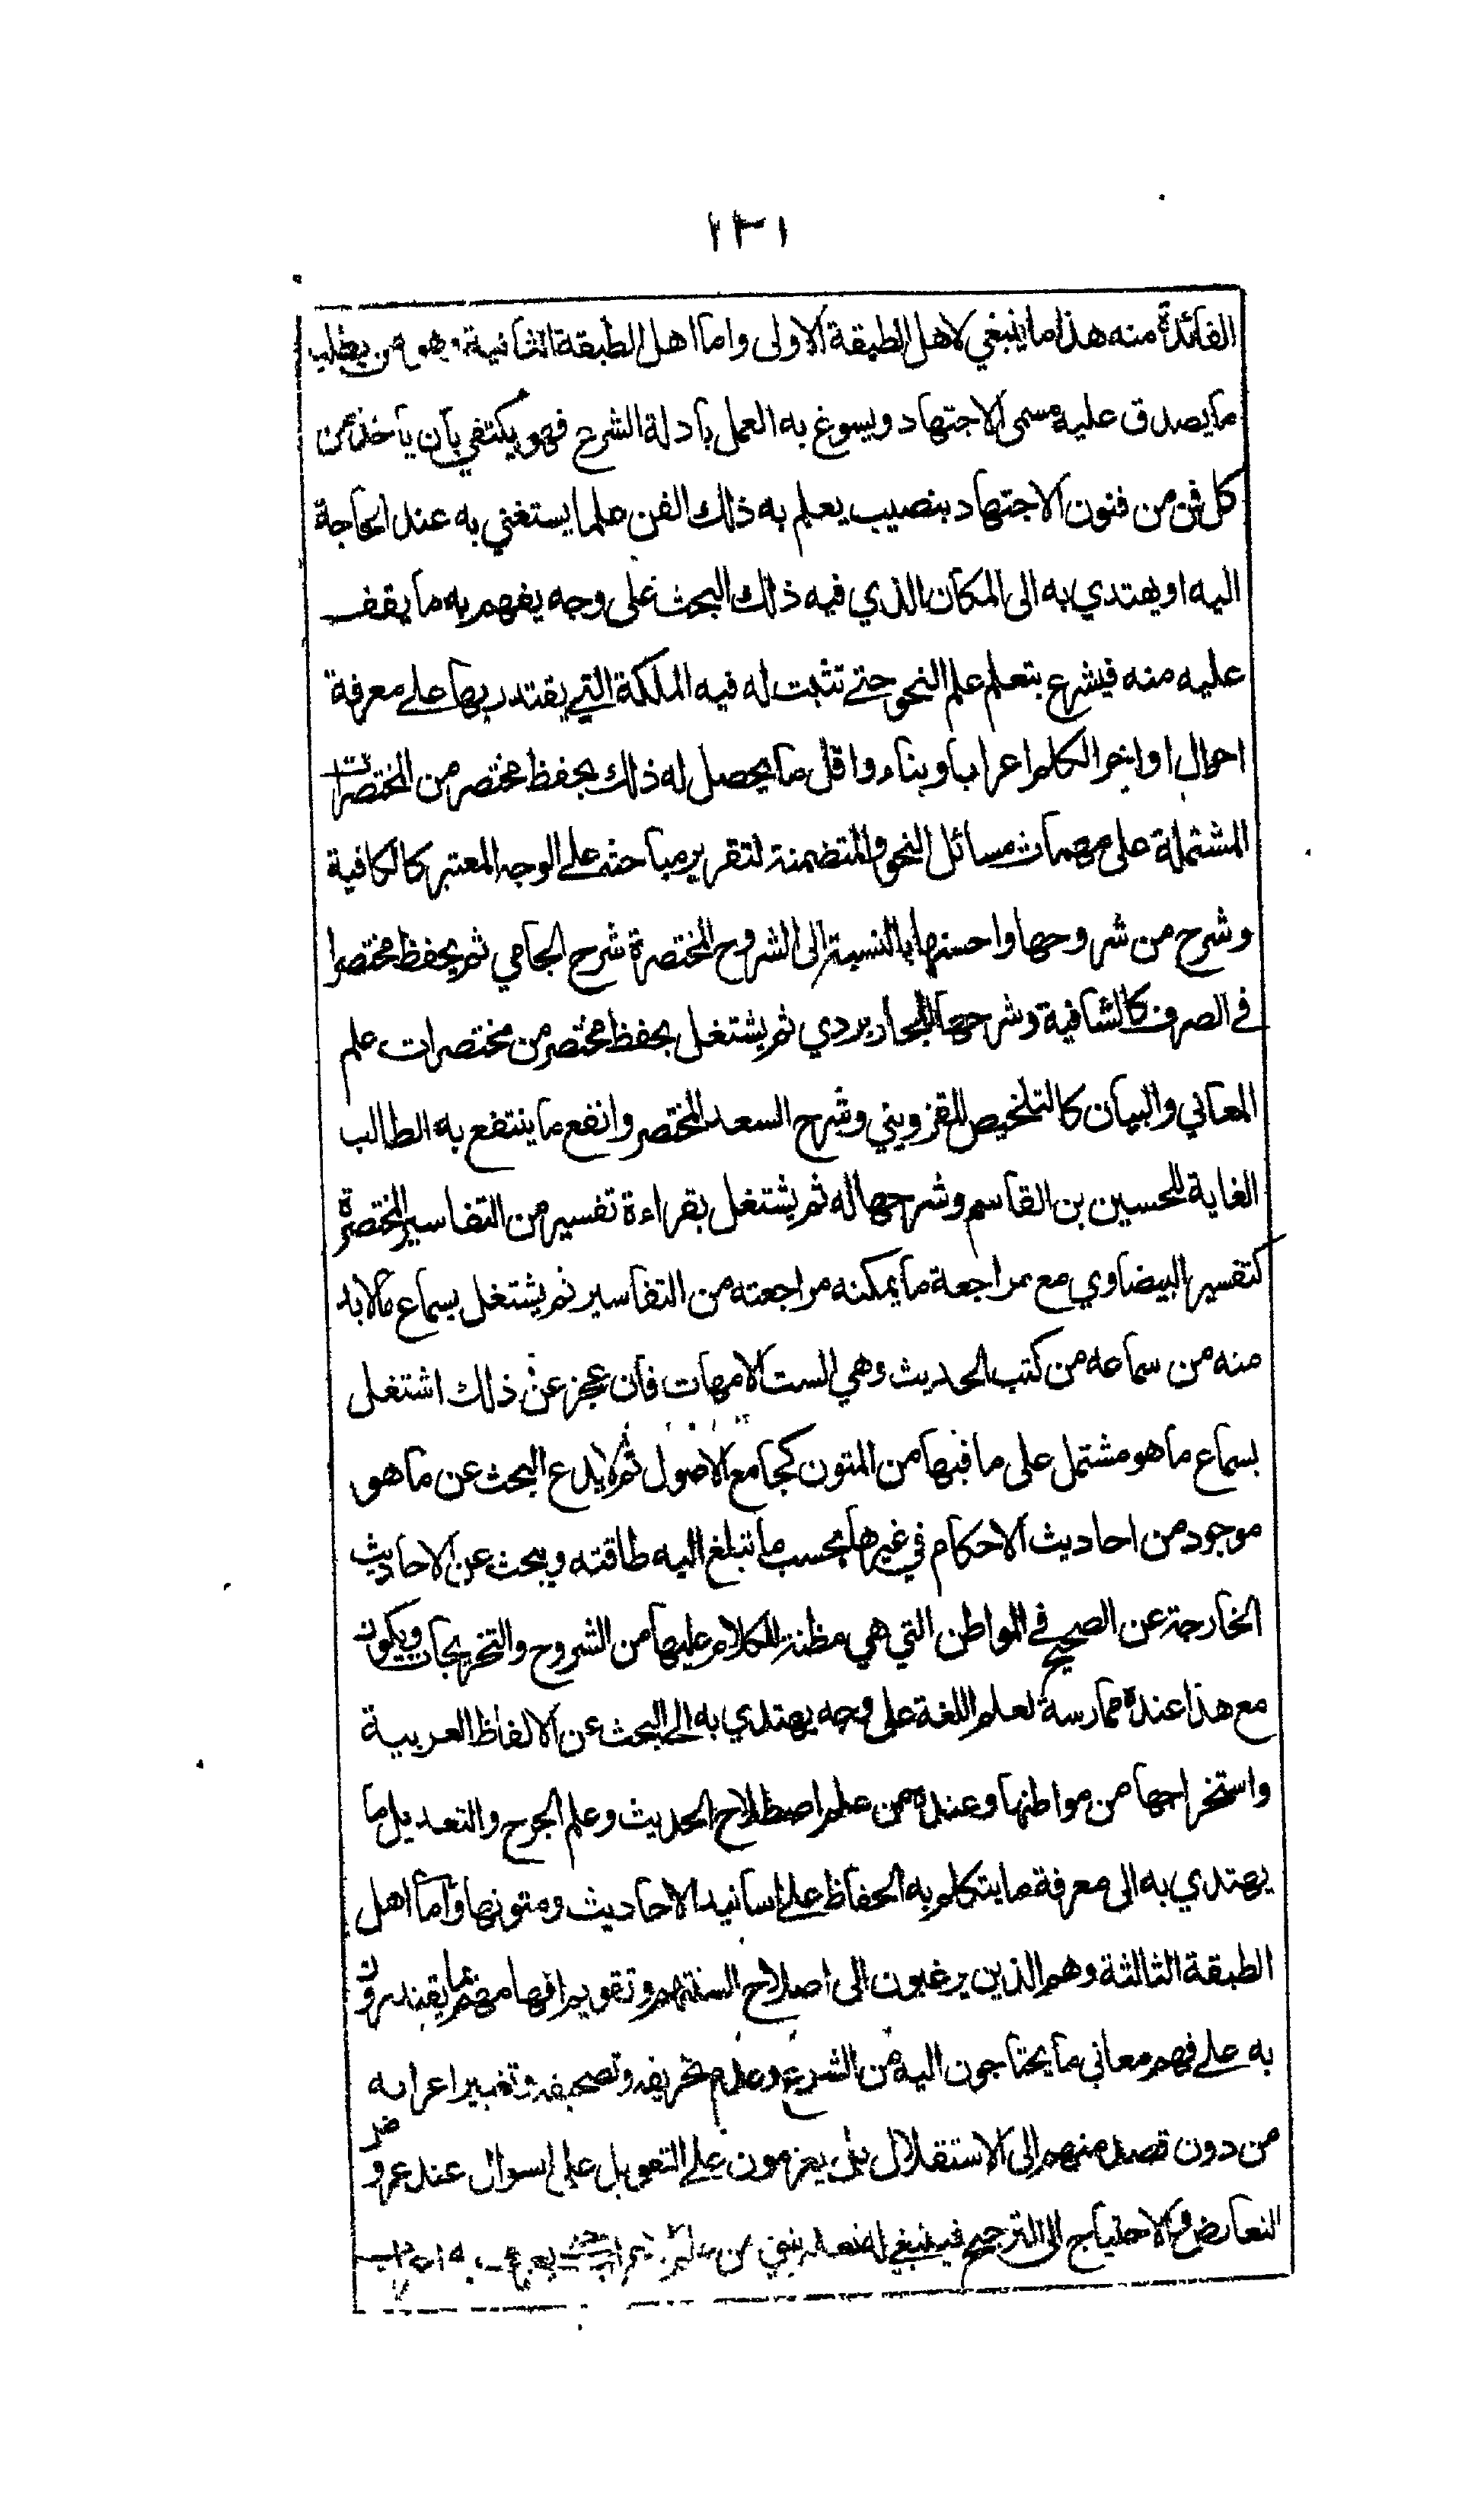 ١٣١
الفائدة منه هذا ما ينبغي لاهل الطبقة الاولى واما اهل الطبقة الثانية وهو من يطلب
ما يصدق عليه مسمى الاجتهاد ويسوغ به العمل بادلة الشرع فهو يكتفي بان ياخذ من
كل فن من فنون الاجتهاد بنصيب يعلم به ذلك الفن علما يستغني به عند الحاجة
اليه او يهتدي به الى المكان الذي فيه ذلك البحث على وجه يفهم به ما يقف
عليه منه فيشرع بتعلم علم النحو حتى تثبت له فيه الملكة التي يقتدر بها على معرفة
احوال اواخر الكلم اعرابا وبناء واقل ما يحصل له ذلك بحفظ مختصر من المختصرات
المشتملة على مهمات مسائل النحو والمتضمنة لتقرير مباحثه على الوجه المعتبر كالكافية
وشرح من شروحها واحسنها بالنسبة الى الشروح المختصرة شرح الجامي ثم يحفظ مختصرا
في الصرف كالشافية وشرحها للجاربردي ثم يشتغل بحفظ مختصر من مختصرات علم
المعاني والبيان كالتلخيص للقزويني وشرح السعد المختصر وانفع ما ينتفع به الطالب
الغاية للحسين بن القاسم وشرحها له ثم يشتغل بقراءة تفسير من التفاسير المختصرة
كتفسير البيضاوي مع مراجعة ما يمكنه مراجعته من التفاسير ثم يشتغل بسماع مالابد
منه من سماعه من كتب الحديث وهي الست الامهات فان عجز عن ذلك اشتغل
بسماع ما هو مشتمل على ما فيها من المتون كجامع الاصول ثم لا يدع البحث عن ما هو
موجود من احاديث الاحكام في غيرها بحسب ما تبلغ اليه طاقته ويبحث عن الاحاديث
الخارجة عن الصحيح في المواطن التي هي مظنة للكلام عليها من الشروح والتخريجات ويكون
مع هذا عنده ممارسة لعلم اللغة على وجه يهتدي به الى البحث عن الالفاظ العربية
واستخراجها من مواطنها وعنده من علم اصطلاح الحديث وعلم الجرح والتعديل ما
يهتدي به الى معرفة ما يتكلم به الحفاظ على اسانيد الاحاديث ومتونها واما اهل
الطبقة الثالثة وهم الذين يرغبون الى اصلاح السنتهم وتقويم افهامهم بما يقتدرون
به على فهم معاني ما يحتاجون اليه من الشرع وعدم تحريفه وتصحيفه وتغيير اعرابه
من دون قصد منهم الى الاستقلال بل يعزمون على التعويل على السوال عند عروض
التعارض والاحتياج الى الترجيح فينبغي له تعلم